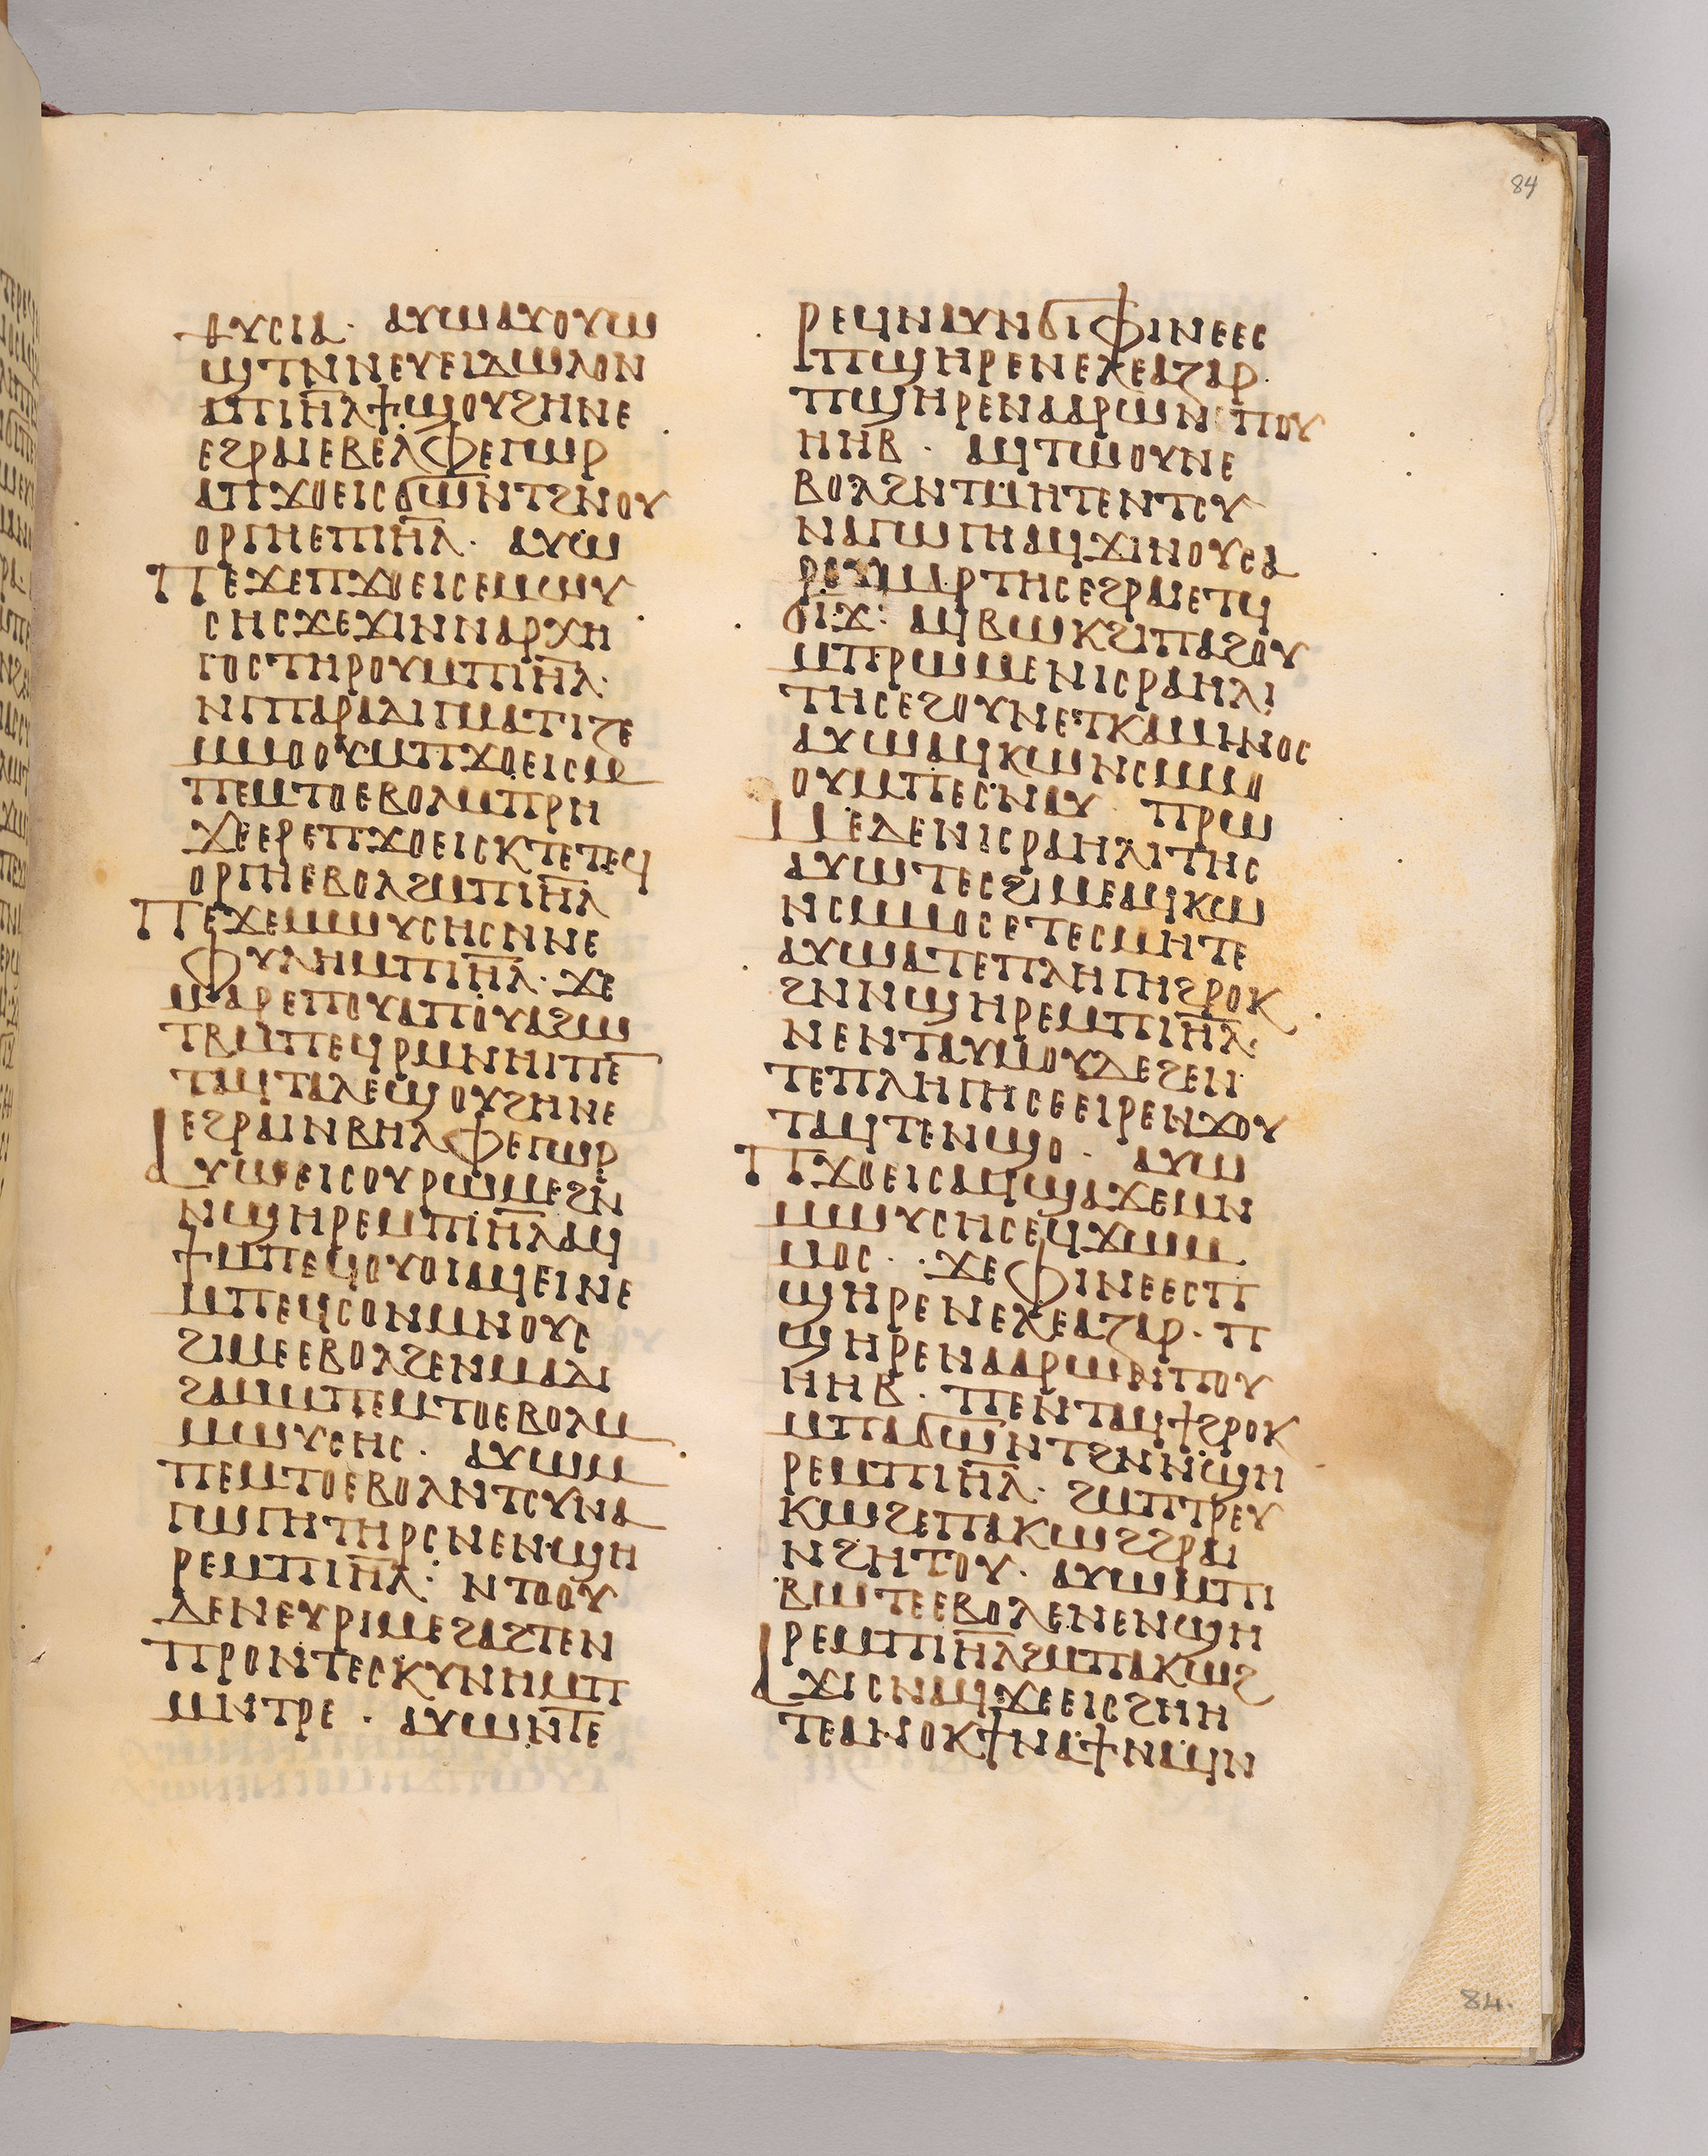 84
ⲑⲩⲥⲓⲁ· ⲁⲩⲱⲁⲩⲟⲩⲱ
ϣⲧⲛⲛⲉⲩⲉⲓⲇⲱⲗⲟⲛ
ⲁⲡⲓⲏ̅ⲗϯϣⲟⲩϩⲏⲛⲉ
ⲉϩⲣⲁⲓⲉⲃⲉⲗⲫⲉⲅⲱⲣ
ⲁⲡϫⲟⲉⲓⲥϭⲱⲛⲧϩⲛⲟⲩ
ⲟⲣⲅⲏⲉⲡⲓⲏ̅ⲗ· ⲁⲩⲱ
ⲡⲉϫⲉⲡϫⲟⲉⲓⲥⲉⲙⲱⲩ
ⲥⲏⲥϫⲉϫⲓⲛⲛⲁⲣⲭⲏ
ⲅⲟⲥⲧⲏⲣⲟⲩⲙⲡⲓⲏ̅ⲗ·
ⲛⲅⲡⲁⲣⲁⲇⲓⲅⲙⲁⲧⲓⲍⲉ
ⲙⲙⲟⲟⲩⲙⲡϫⲟⲉⲓⲥⲙ
ⲡⲉⲙⲧⲟⲉⲃⲟⲗⲙⲡⲣⲏ
ϫⲉⲉⲣⲉⲡϫⲟⲉⲓⲥⲕⲧⲉⲧⲉϥ
ⲟⲣⲅⲏⲉⲃⲟⲗϩⲙⲡⲓⲏ̅ⲗ
ⲡⲉϫⲉⲙⲱⲩⲥⲏⲥⲛⲛⲉ
ⲫⲩⲗⲏⲙⲡⲓⲏ̅ⲗ· ϫⲉ
ⲙⲁⲣⲉⲡⲟⲩⲁⲡⲟⲩⲁϩⲱ
ⲧⲃⲙⲡⲉϥⲣⲙⲛⲏⲓⲡⲉ̅
ⲧⲁϥⲧⲁⲗⲉϣⲟⲩϩⲏⲛⲉ
ⲉϩⲣⲁⲓⲛⲃⲏⲗⲫⲉⲅⲱⲣ
ⲁⲩⲱⲉⲓⲥⲟⲩⲣⲱⲙⲉϩⲛ
ⲛϣⲏⲣⲉⲙⲡⲓⲏ̅ⲗⲁϥ
ϯⲙⲡⲉϥⲟⲩⲟⲓⲁϥⲉⲓⲛⲉ
ⲙⲡⲉϥⲥⲟⲛⲙⲛⲟⲩⲥ
ϩⲓⲙⲉⲉⲃⲟⲗϩⲉⲛⲙⲁⲇⲓ
ϩⲁⲙⲙⲡⲉⲙⲧⲟⲉⲃⲟⲗⲙ
ⲙⲱⲩⲥⲏⲥ· ⲁⲩⲱⲙ
ⲡⲉⲙⲧⲟⲉⲃⲟⲗⲛⲧⲥⲩⲛⲁ
ⲅⲱⲅⲏⲧⲏⲣⲥⲛⲉⲛϣⲏ
ⲣⲉⲙⲡⲓⲏ̅ⲗ· ⲛⲧⲟⲟⲩ
ⲇⲉⲛⲉⲩⲣⲓⲙⲉϩⲁϩⲧⲉⲛ
ⲡⲣⲟⲛⲧⲉⲥⲕⲩⲛⲏⲙⲡ
ⲙⲛⲧⲣⲉ· ⲁⲩⲱⲛⲧⲉ
ⲣⲉϥⲛⲁⲩⲛϭⲓⲫⲓⲛⲉⲉⲥ
ⲡϣⲏⲣⲉⲛⲉⲗⲉⲁⲍⲁⲣ·
ⲡϣⲏⲣⲉⲛⲁⲁⲣⲱⲛⲡⲟⲩ
ⲏⲏⲃ· ⲁϥⲧⲱⲟⲩⲛⲉ
ⲃⲟⲗϩⲛⲧⲙⲏⲧⲉⲛⲧⲥⲩ
ⲛⲁⲅⲱⲅⲏⲁϥϫⲓⲛⲟⲩⲥⲁ
ⲣⲟⲩⲙⲁⲣⲧⲏⲥⲉϩⲣⲁⲓⲉⲧϥ
ϭⲓϫ: ⲁϥⲃⲱⲕϩⲓⲡⲁϩⲟⲩ
ⲙⲡⲣⲱⲙⲉⲛⲓⲥⲣⲁⲏⲗⲓ
ⲧⲏⲥⲉϩⲟⲩⲛⲉⲧⲕⲁⲙⲓⲛⲟⲥ
ⲁⲩⲱⲁϥⲕⲱⲛⲥⲙⲙⲟ
ⲟⲩⲙⲡⲉⲥⲛⲁⲩ ⲡⲣⲱ
ⲙⲉⲇⲉⲛⲓⲥⲣⲁⲏⲗⲓⲧⲏⲥ
ⲁⲩⲱⲧⲉⲥϩⲓⲙⲉⲁϥⲕⲱ
ⲛⲥⲙⲙⲟⲥⲉⲧⲉⲥⲙⲏⲧⲉ
ⲁⲩⲱⲁⲧⲉⲡⲗⲏⲅⲏϩⲣⲟⲕ
ϩⲛⲛϣⲏⲣⲉⲙⲡⲓⲏ̅ⲗ·
ⲛⲉⲛⲧⲁⲩⲙⲟⲩⲇⲉϩⲉⲛ
ⲧⲉⲡⲗⲏⲅⲏⲥⲉⲉⲓⲣⲉⲛϫⲟⲩ
ⲧⲁϥⲧⲉⲛϣⲟ· ⲁⲩⲱ
ⲡϫⲟⲉⲓⲥⲁϥϣⲁϫⲉⲙⲛ
ⲙⲱⲩⲥⲏⲥⲉϥϫⲙⲙ
ⲙⲟⲥ· ϫⲉⲫⲓⲛⲉⲉⲥⲡ
ϣⲏⲣⲉⲛⲉⲗⲉⲁⲍⲁⲣ· ⲡ
ϣⲏⲣⲉⲛⲁⲁⲣⲱⲛⲡⲟⲩ
ⲏⲏⲃ· ⲡⲉⲛⲧⲁϥϯϩⲣⲟⲕ
ⲙⲡⲁϭⲱⲛⲧϩⲛⲛϣⲏ
ⲣⲉⲙⲡⲓⲏ̅ⲗ· ϩⲙⲡⲧⲣⲉⲩ
ⲕⲱϩⲉⲡⲁⲕⲱϩϩⲣⲁⲓ
ⲛϩⲏⲧⲟⲩ· ⲁⲩⲱⲙⲡⲓ
ⲃⲱⲧⲉⲉⲃⲟⲗⲉⲛⲉⲛϣⲏ
ⲣⲉⲙⲡⲓⲏ̅ⲗϩⲙⲡⲁⲕⲱϩ
ⲁϫⲓⲥⲛⲁϥϫⲉⲉⲓⲥϩⲏⲏ
ⲧⲉⲁⲛⲟⲕϯⲛⲁϯⲛⲁϥⲛ
84.